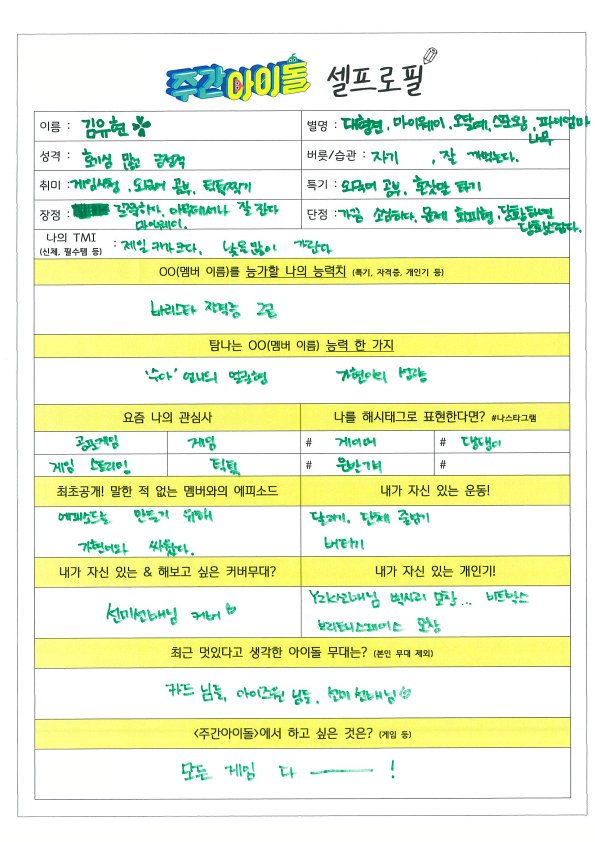 주간아이돌 셀프로필
이름 : 김유현
별명 : 대형견, 마이웨이, 오달예, 스포왕, 파이엄마
나무
성격 : 호기심 많고 긍정적
버릇/습관 : 자기 , 잘 까먹는다.
취미 : 게임시청, 외국어 공부, 틱톡찍기
특기 : 외국어 공부, 혼잣말 하기
장점 : 깔끔하다, 아무데서나 잘 잔다
마이웨이.
단점 : 가끔 소심하다, 문제 회피형, 당황하면
당황스럽다.
나의 TMI
(신체, 필수템 등) : 제일 키가 크다. 낯을 많이 가린다
OO(멤버 이름)를 능가할 나의 능력치 (특기, 자격증, 개인기 등)
바리스타 자격증 2급
탐나는 OO(멤버 이름) 능력 한 가지
'수아' 언니의 얼굴형 가현이의 성량
요즘 나의 관심사
나를 해시태그로 표현한다면? #나스타그램
공포게임 게임 # 게이머 # 댕댕이
게임 스트리밍 틱톡 # 운반기계 #
최초공개! 말한 적 없는 멤버와의 에피소드
내가 자신 있는 운동!
에피소드를 만들기 위해
가현이와 싸웠다.
달리기, 단체 줄넘기
버티기
내가 자신 있는 & 해보고 싶은 커버무대?
내가 자신 있는 개인기!
선미선배님 커버♡
Y2K선배님 립싱크 모창... 비트박스
브리트니스피어스 모창
최근 멋있다고 생각한 아이돌 무대는? (본인 무대 제외)
카드 님들, 아이즈원 님들, 선미선배님♡
<주간아이돌>에서 하고 싶은 것은? (게임 등)
모든 게임 다 ――― !